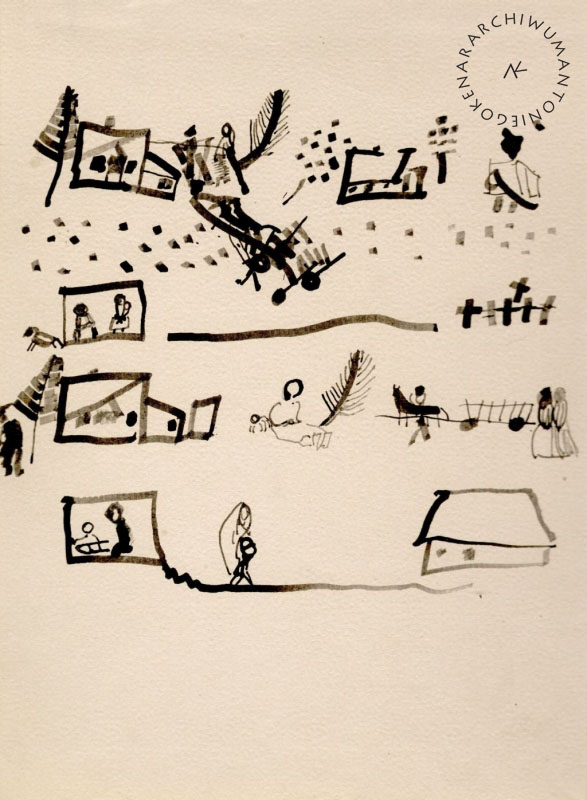 ARCHIWUM ANTONIEGO KENARA